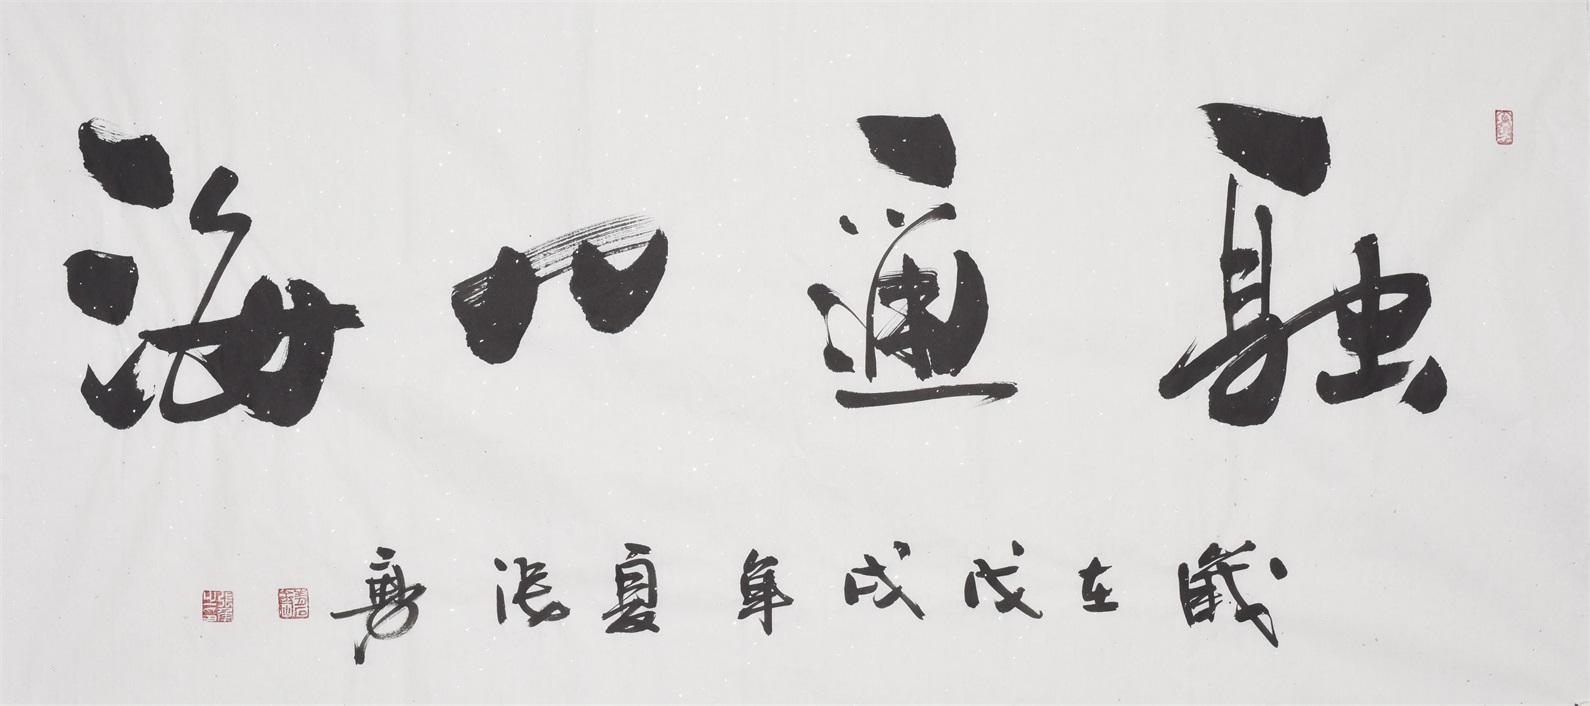 融通四海
歲在戊戌年夏張